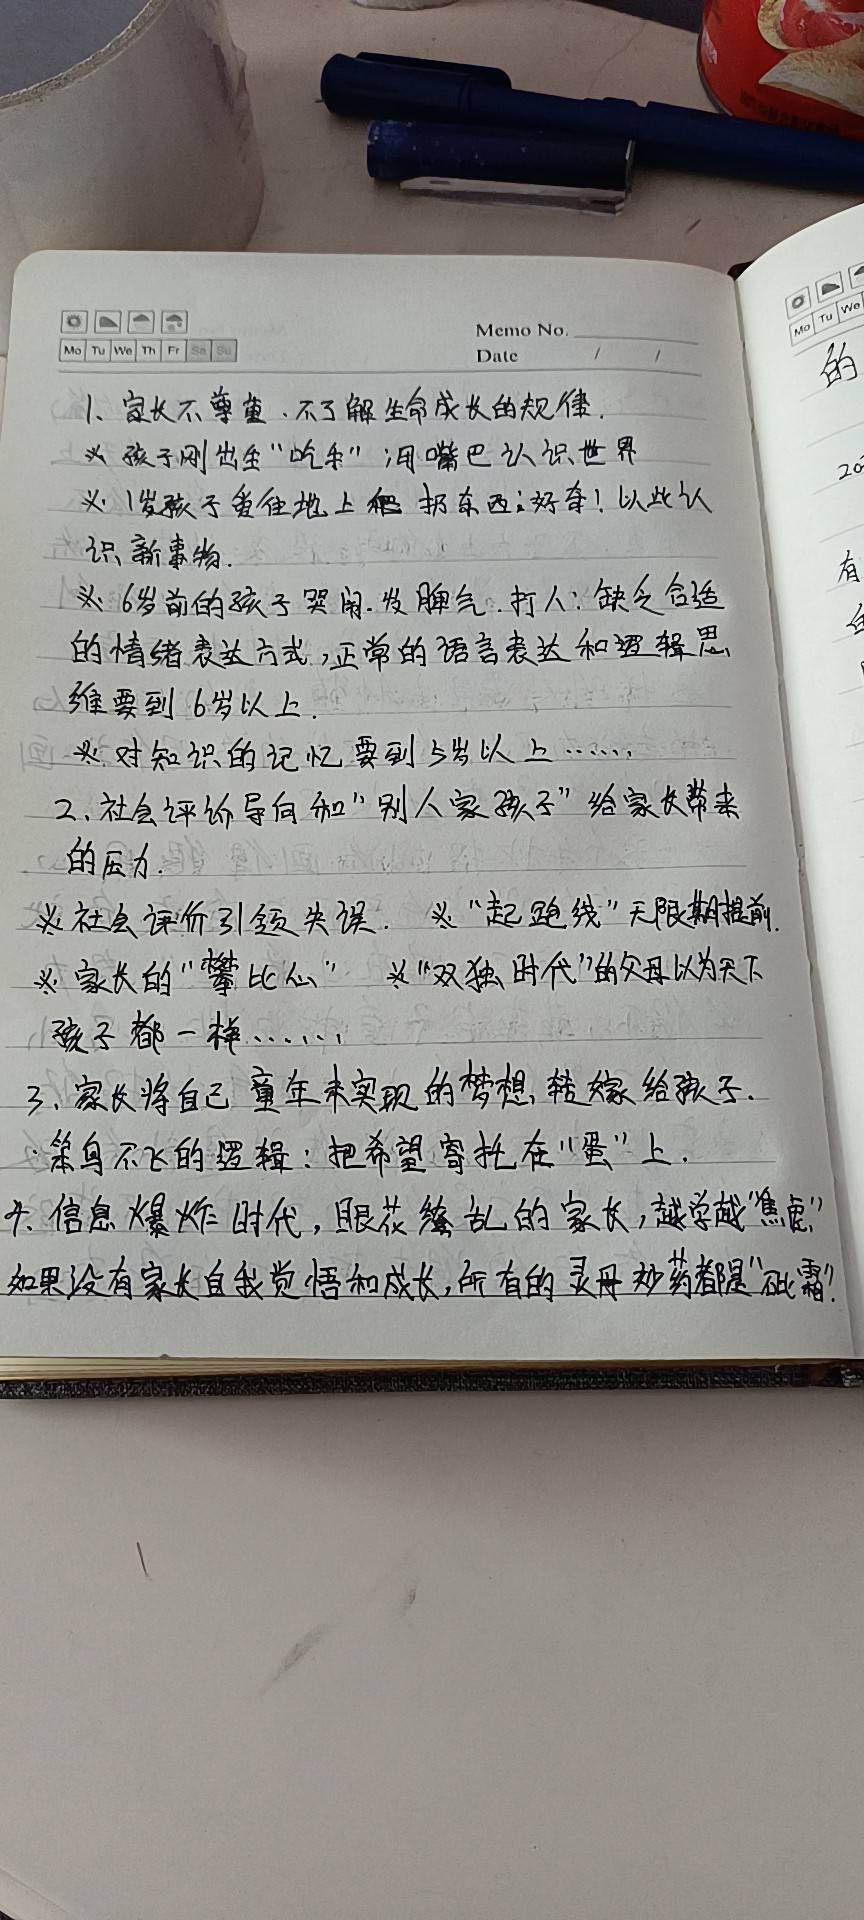 Mo Tu We Th Fr Sa Su
Memo No.
Date / /
1、家长不尊重、不了解生命成长的规律.
※ 孩子刚出生“吃手”;用嘴巴认识世界
※ 1岁孩子爱往地上扔东西;好奇!以此认
识新事物.
※ 6岁前的孩子哭闹.发脾气.打人:缺乏合适
的情绪表达方式,正常的语言表达和逻辑思
维要到6岁以上.
※ 对知识的记忆要到5岁以上……
2、社会评价导向和“别人家孩子”给家长带来
的压力.
※ 社会评价引领失误. ※“起跑线”无限期提前.
※ 家长的“攀比心” ※“双独时代”的父母以为天下
孩子都一样……
3、家长将自己童年未实现的梦想,转嫁给孩子.
·笨鸟不飞的逻辑:把希望寄托在“蛋”上.
4、信息爆炸时代,眼花缭乱的家长,越学越“焦虑”
如果没有家长自我觉悟和成长,所有的灵丹妙药都是“砒霜”!
Mo Tu We
的
有